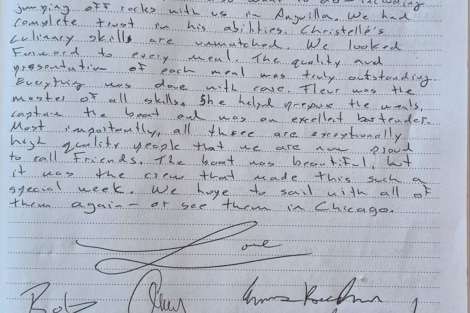 jumping off rocks with us in Anguilla. We had
complete trust in his abilities. Christelle's
culinary skills are unmatched. We looked
forward to every meal. The quality and
presentation of each meal was truly outstanding.
Everything was done with care. Fleur was the
master of all skills. She helped prepare the meals,
captain the boat and was an excellent bartender.
Most importantly, all three are exceptionally
high quality people that we are now proud
to call Friends. The boat was beautiful, but
it was the crew that made this such a
special week. We hope to sail with all of
them again - or see them in Chicago.
Love
Bob